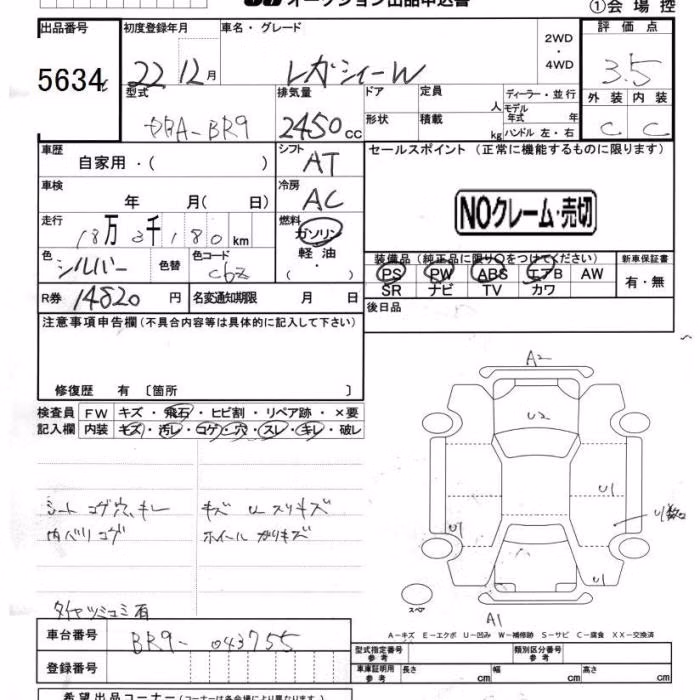 オークション出品申込書
①会場控
出品番号 初度登録年月 車名・グレード 2WD・4WD 評価点
5634 22 12月 レガシィーW 3.5
型式 排気量 ドア 定員 人 ディーラー・並行 外装 内装
DBA-BR9 2450cc 形状 積載 kg モデル年式 年 ハンドル 左・右 C C
車歴 自家用・( ) シフト AT セールスポイント (正常に機能するものに限ります)
車検 年 月( 日) 冷房 AC
NOクレーム・売切
走行 18万3千180km 燃料 ガソリン
軽油・( )
色 シルバー 色替 色コード C6Z
装備品 (純正品に限り○をつけてください) 新車保証書
PS PW ABS エアB AW 有・無
SR ナビ TV カワ
R券 14820円 名変通知期限 月 日 後日品
注意事項申告欄(不具合内容等は具体的に記入して下さい)
修復歴 有 〔箇所 〕
検査員 FW キズ・飛石・ヒビ割・リペア跡・×要
記入欄 内装 キズ・汚レ・コゲ・穴・スレ・キレ・破レ
シート コゲ穴、キレ キズ U スリキズ
内バリ コゲ ホイール ガリキズ
タイヤツミコミ有
A2
U2
U1
U1数コ
U1
U1
スペア
A1
A-キズ E-エクボ U-凹み W-補修跡 S-サビ C-腐食 XX-交換済
車台番号 BR9-043755 型式指定番号 参考 類別区分番号 参考
登録番号 車庫証明用 参考 長さ cm 幅 cm 高さ cm
希望出品コーナー(コーナーは各会場により異なります)